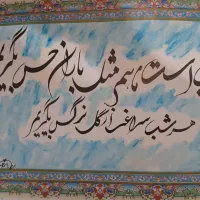 است با هم مثل باران حس بگیریم
هر شب سراغ از گل نرگس بگیریم